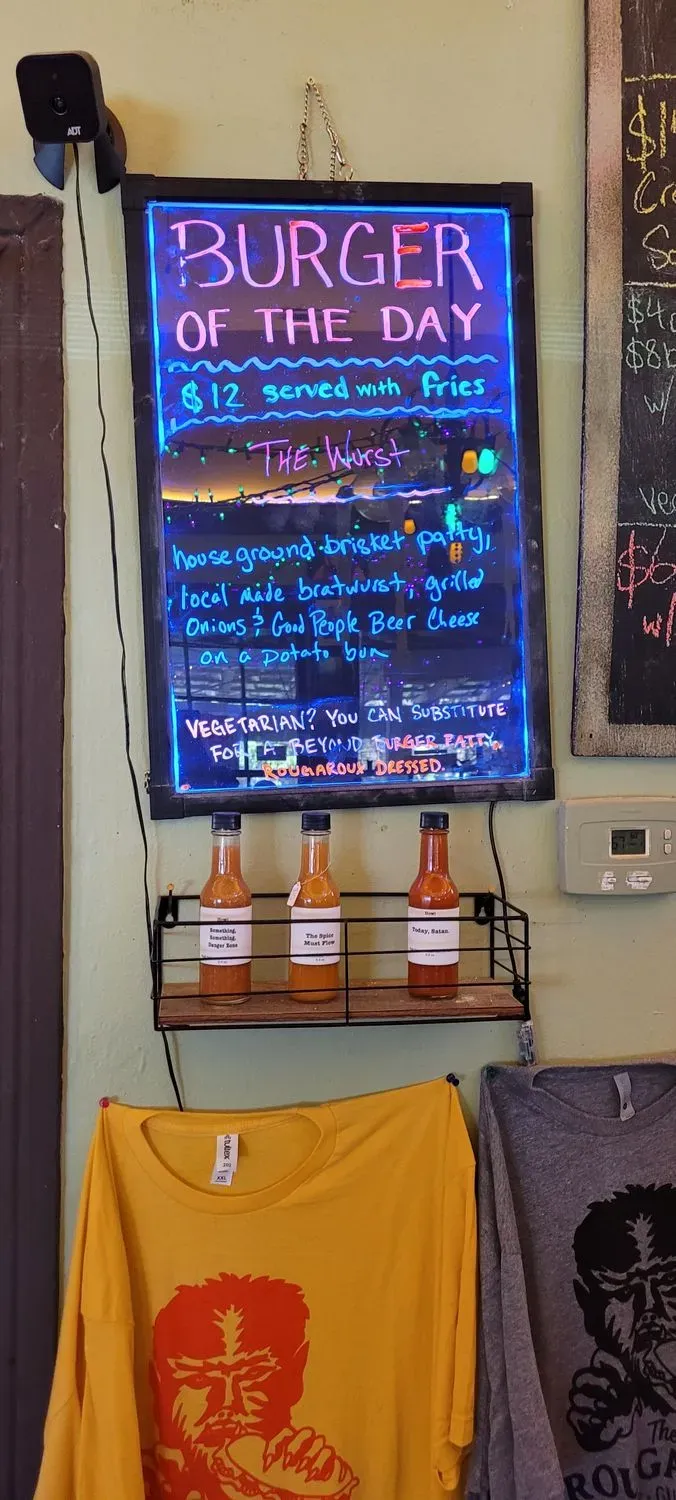 ADT
BURGER
OF THE DAY
$12 served with fries
THE WURST
house ground brisket patty,
local made bratwurst, grilled
Onions & Good People Beer Cheese
on a potato bun
VEGETARIAN? YOU CAN SUBSTITUTE
FOR A BEYOND BURGER PATTY,
ROUGAROUX DRESSED.
Something,
Something,
Danger Zone
The Spice
Must Flow
Howl
Today, Satan.
tultex
202
XXL
The